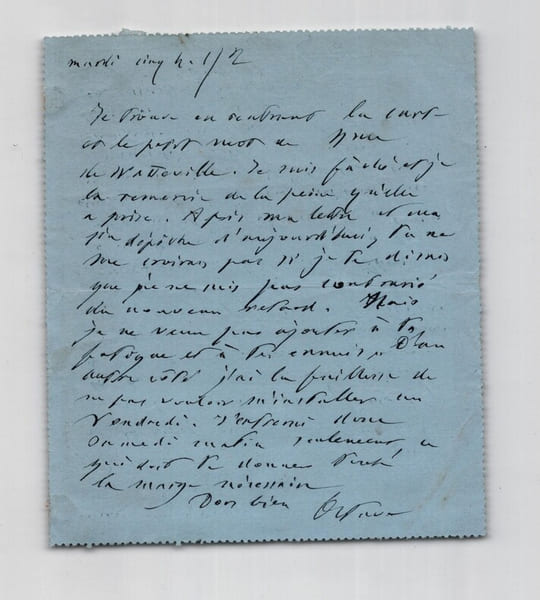 mardi cinq h. 1/2
Je trouve en rentrant la carte
et le petit mot de Mme
de Watteville. Je suis fâché et je
la remercie de la peine qu'elle
a prise. Après ma lettre et ma
dépêche d'aujourd'hui, tu ne
me croirais pas si je te disais
que je ne suis pas contrarié
du nouveau retard. Mais
je ne veux pas ajouter à ta
fatigue et à tes ennuis. D'un
autre côté j'ai la faiblesse de
ne pas vouloir m'installer un
Vendredi. J'entrerai donc
Samedi matin seulement ce
qui doit te donner toute
la marge nécessaire
Dors bien Octave